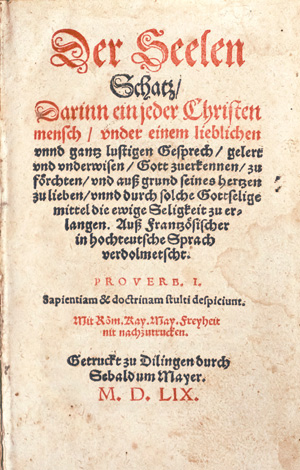 Der Seelen
Schatz/
Darinn ein jeder Christen
mensch / vnder einem lieblichen
vnnd gantz lustigen Gesprech / gelert
vnd vnderwisen / Gott zuerkennen / zu
förchten / vnd auß grund seines hertzen
zu lieben / vnnd durch solche Gottselige
mittel die ewige Seligkeit zu er-
langen. Auß Frantzösischer
in hochteutsche Sprach
verdolmetscht.
PROVERB. I.
Sapientiam & doctrinam stulti despiciunt.
Mit Röm. Kay. May. Freyheit
nit nachzutrucken.
Getruckt zu Dilingen durch
Sebaldum Mayer.
M. D. LIX.